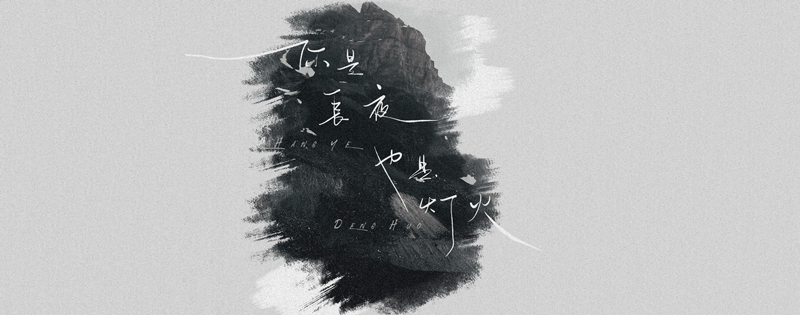 你是
长夜
HANG YE
也是
灯火
DENG HUO